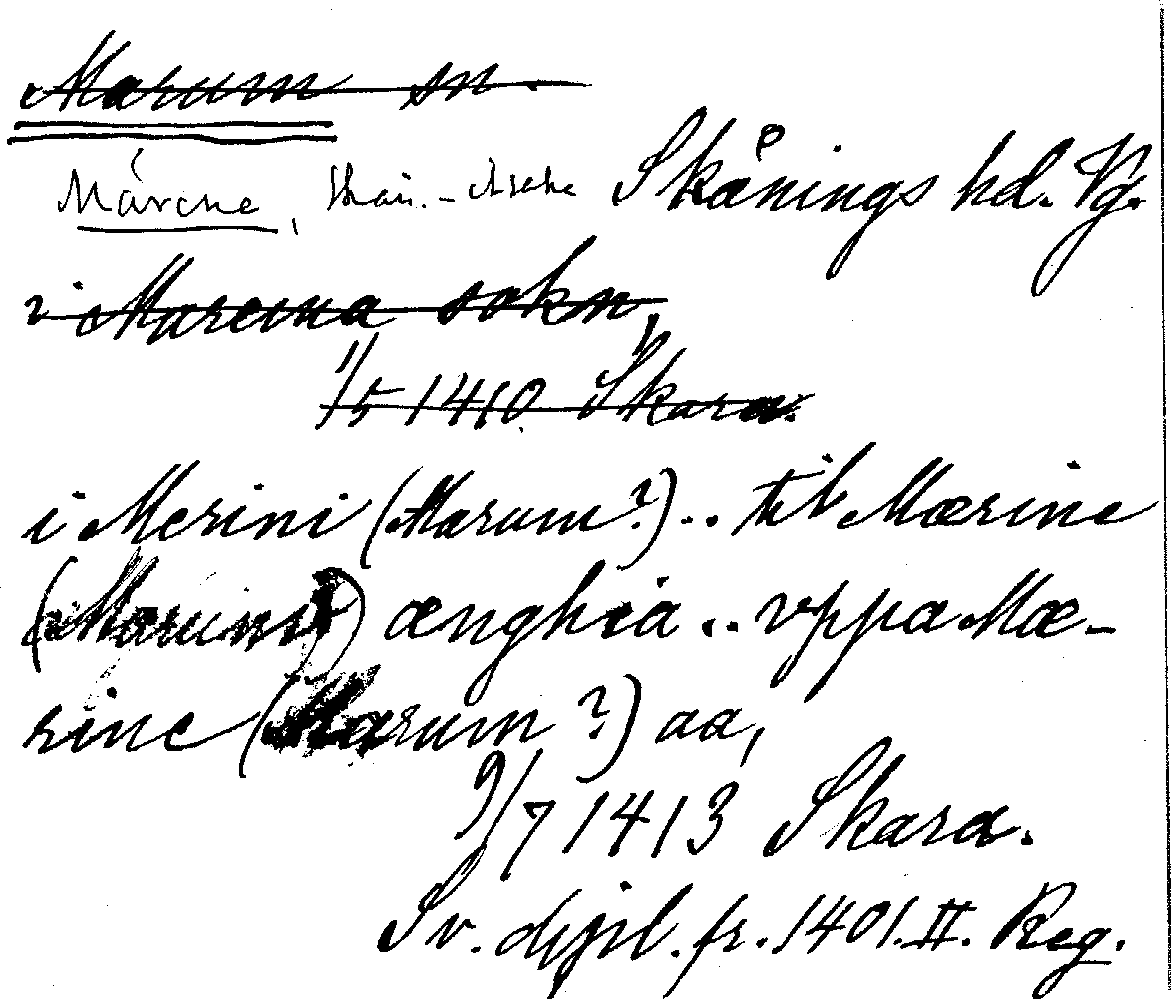 Marum sn.
Märene, Skån.-Skånings hd. Vg.
i Marema sokn,
1/5 1410 Skara.
i Merini (Marum?) .. til Mærine
(Marum) ænghia .. vppa Mæ-
rine (Marum?) aa,
9/7 1413 Skara.
Sv. dipl. fr. 1401. II. Reg.